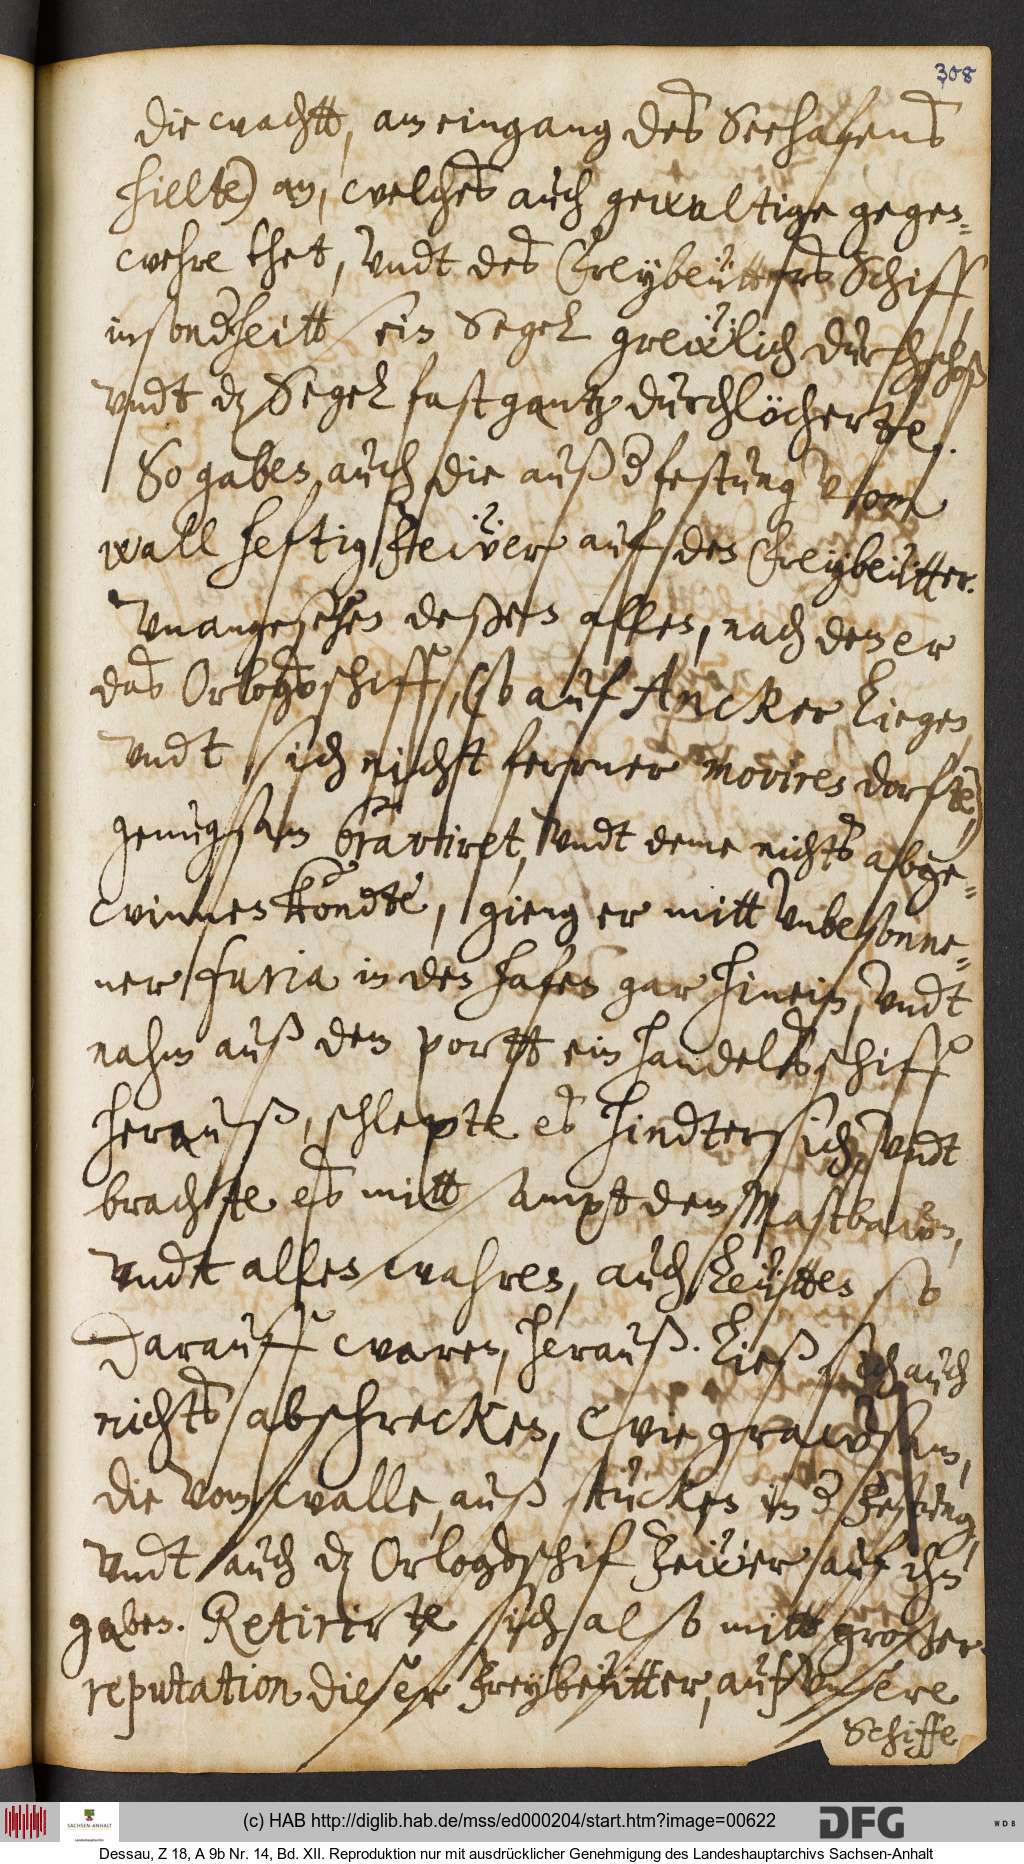 308
die wachtt, am eingang des Seehafens
hiellte) an, welches auch gewaltige gegen=
wehre thet, vndt des Freybeütters Schiff
insonderheitt sein Segel grewlich durchschoß
vndt dz Segel fast gantz durchlöcherte.
So gaben auch die auß der festung vom
wall heftig fewer auf den Freybeütter.
Vnangesehen deßen alles, nach dem er
das Orlogsschiff, (so auf Ancker liegen
vndt sich nicht ferrner moviren dorfte,)
genugsam braviret, vndt deme nichts abge=
winnen köndte, gieng er mitt vnbesonne=
ner furia in den hafen gar hinein, vndt
nahm auß dem portt ein handelsschiff
herauß, schlepte es hindter sich, vndt
brachte es mitt sampt dem Mastbawm,
vndt allen wahren, auch leütten so
darauff waren, herauß. Ließ sich auch
nichts abschrecken, wie grawsam,
die vom walle, auß stücken in der festung,
vndt auch dz Orlogsschif fewer auf ihn
gaben. Retirirte sich also mitt großer
reputation dieser freybeütter, auf vnsere
Schiffe
(c) HAB http://diglib.hab.de/mss/ed000204/start.htm?image=00622
SACHSEN-ANHALT
DFG
WDB
Dessau, Z 18, A 9b Nr. 14, Bd. XII. Reproduktion nur mit ausdrücklicher Genehmigung des Landeshauptarchivs Sachsen-Anhalt